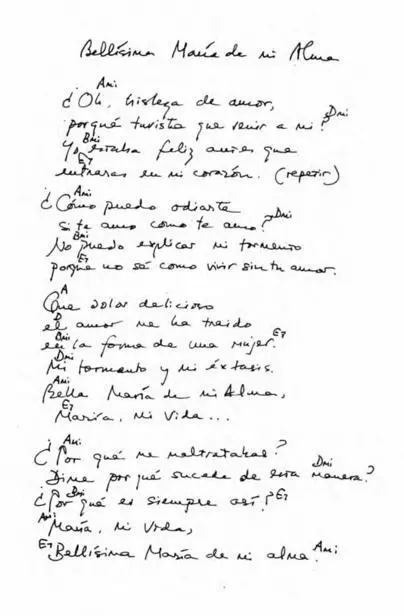 Bellísima María de mi Alma
Ami
¿Oh, tristeza de amor,
Dmi
porqué tuvista que venir a mi?
Bmi
Yo estaba feliz antes que
E7
entraras en mi corazón. (repetir)
Ami
¿Cómo puedo odiarte
Dmi
si te amo como te amo?
Bmi
No puedo explicar mi tormento
E7
porque no sé como vivir sin tu amor.
A
Que dolor delicioso
D
el amor me ha traido
Dmi E7
en la forma de una mujer.
Dmi
Mi tormento y mi éxtasis.
Ami
Bella María de mi Alma,
E7
María, mi vida...
Ami
¿Por qué me maltratabas?
Dmi
Dime por qué sucede de esta manera?
Bmi E7
¿Por qué es siempre así?
Ami
María, mi vida,
E7 Ami
Bellísima María de mi alma.